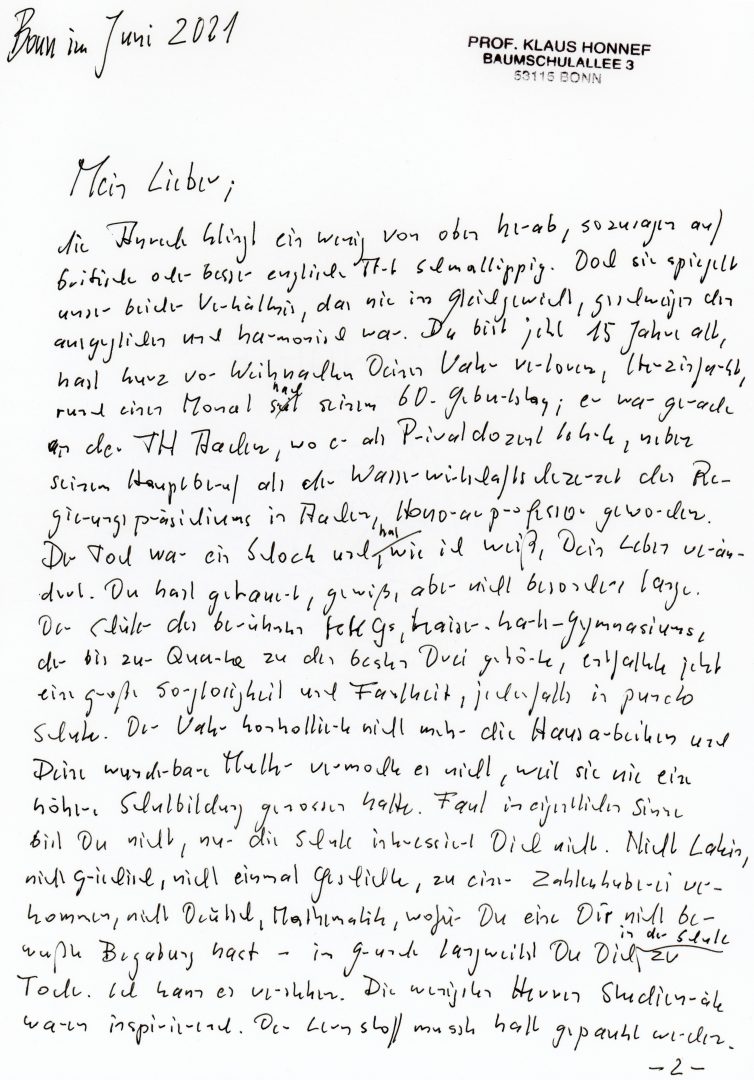 Bonn im Juni 2021
PROF. KLAUS HONNEF
BAUMSCHULALLEE 3
53115 BONN
Mein Lieber,
die Anrede klingt ein wenig von oben herab, sozusagen auf
britische oder besser englische Art schmallippig. Doch sie spiegelt
unser beider Verhältnis, das nie im Gleichgewicht, geschweige denn
ausgeglichen und harmonisch war. Du bist jetzt 15 Jahre alt,
hast kurz vor Weihnachten Deinen Vater verloren, Herzinfarkt,
rund einen Monat nach seinem 60. Geburtstag; er war gerade
an der TH Aachen, wo er als Privatdozent lehrte, neben
seinem Hauptberuf als der Wasserwirtschaftsdezernent des Re-
gierungspräsidiums in Aachen, Honorarprofessor geworden.
Der Tod war ein Schock und hat, wie ich weiß, Dein Leben verän-
dert. Du hast getrauert, gewiß, aber nicht besonders lange.
Der Schüler des berühmten KKGs, Kaiser-Karls-Gymnasiums,
der bis zur Quarta zu den besten Drei gehörte, entfaltete jetzt
eine große Sorglosigkeit und Faulheit, jedenfalls in puncto
Schule. Der Vater kontrollierte nicht mehr die Hausarbeiten und
Deine wunderbare Mutter vermochte es nicht, weil sie nie eine
höhere Schulbildung genossen hatte. Faul im eigentlichen Sinne
bist Du nicht, nur die Schule interessiert Dich nicht. Nicht Latein,
nicht Griechisch, nicht einmal Geschichte, zu einer Zahlenhuberei ver-
kommen, nicht Deutsch, Mathematik, wofür Du eine Dir nicht be-
wußte Begabung hast – im Grunde langweilst Du Dich in der Schule zu
Tode. Ich kann es verstehen. Die wenigsten Herren Studienräte
waren inspirierend. Der Lernstoff musste halt gepaukt werden.
– 2 –